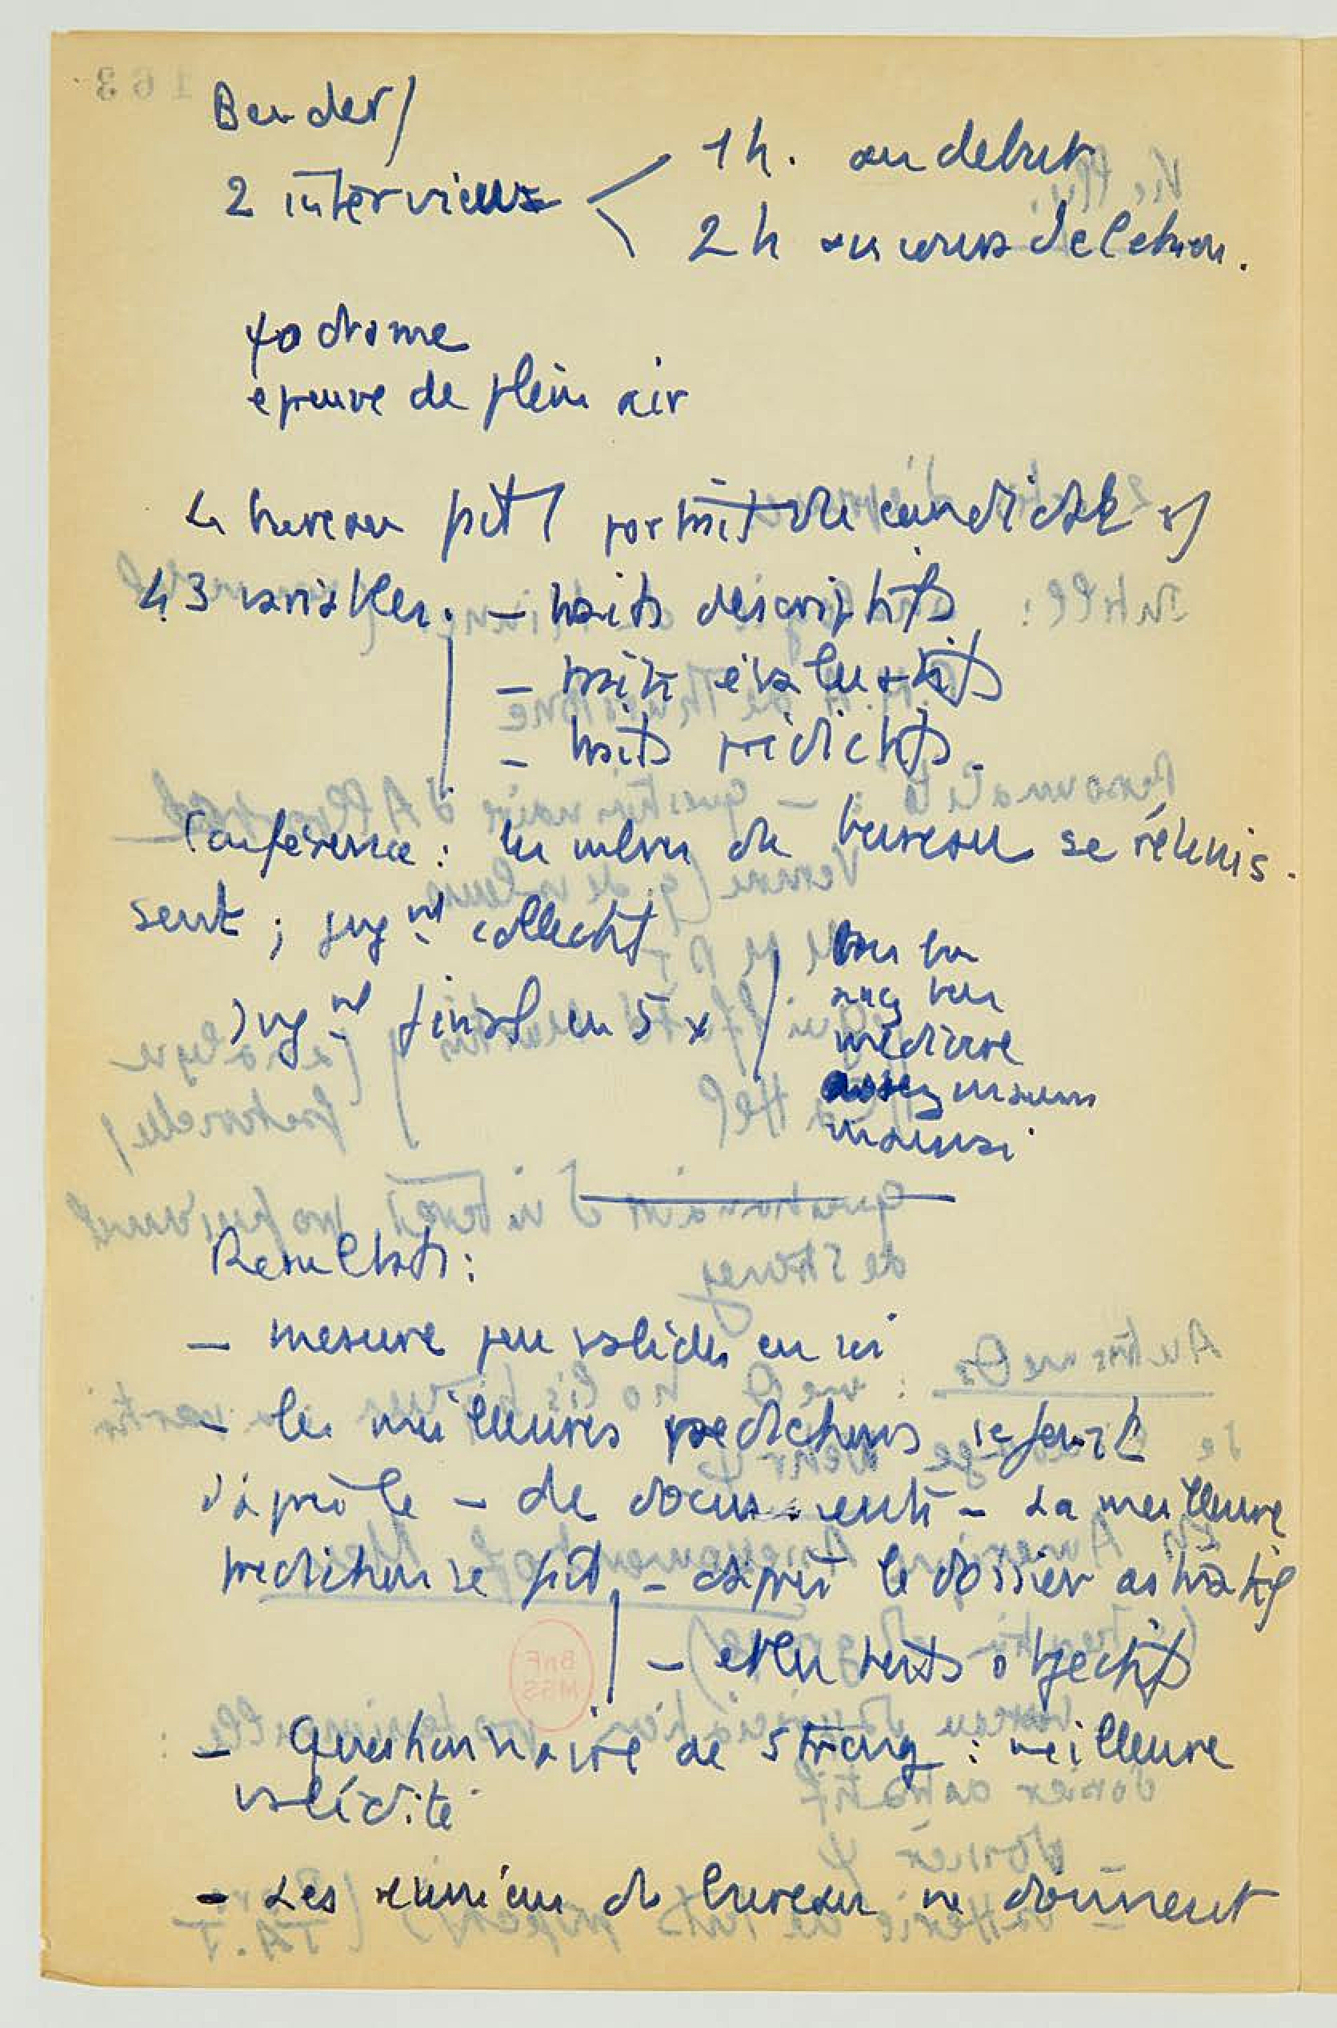 Bender/
2 interviews < 1h. au debut
2h au cours de l'exam.
ψodrame
epreuve de plein air
Le bureau fait 1 portrait du candidat s/
43 variables. - traits descriptifs
- traits évaluatifs
- traits prédictifs.
Conférence : les mbres du bureau se réunis-
sent ; jugmt collectif
Jugmt final en 5 x / tres bon
assez bon
médiocre
assez mauvais
mauvais
Resultats :
- mesure peu valides en soi
- les meilleures predictions se font
d'après le - de documents - La meilleure
prediction se fait - d'après le dossier astratif
- et les tests objectifs
- Questionnaire de Strong : meilleure
validité
- Les reunions du bureau ne donnent
BnF
MSS
163